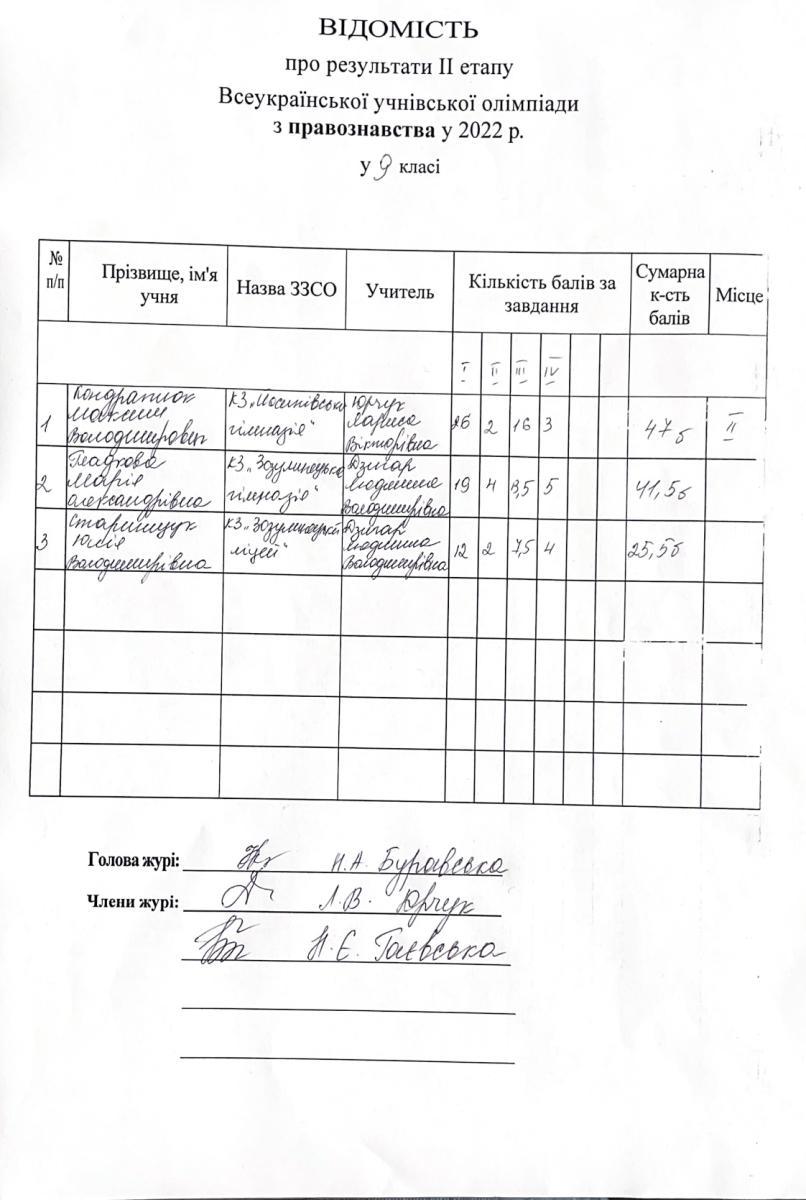 ВІДОМІСТЬ
про результати ІІ етапу
Всеукраїнської учнівської олімпіади
з правознавства у 2022 р.
у 9 класі
№ п/п
Прізвище, ім'я учня
Назва ЗЗСО
Учитель
Кількість балів за завдання
Сумарна к-сть балів
Місце
I II III IV
1
Кондратюк Максим Володимирович
КЗ „Йосипівська гімназія"
Юрчук Лариса Вікторівна
26 2 16 3
47 б
II
2
Гладкова Марія Олександрівна
КЗ „Зозулинецька гімназія"
Дзигар Людмила Володимирівна
19 4 13,5 5
41,5б
3
Старищук Юлія Володимирівна
КЗ „Зозулинецький ліцей"
Дзигар Людмила Володимирівна
12 2 7,5 4
25,5б
Голова журі: Н.А. Буравська
Члени журі: Л.В. Юрчук
Н.Є. Гаєвська